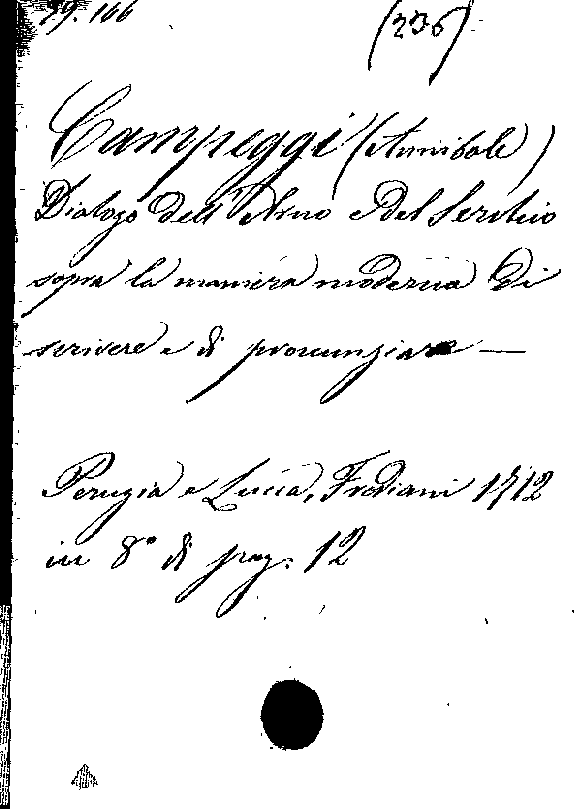 29. 166
(236)
Campeggi (Annibale)
Dialogo dell'Arno e del Serchio
sopra la maniera moderna di
scrivere e di pronunziare —
Perugia e Lucca, Frediani 1712
in 8° di pag. 12